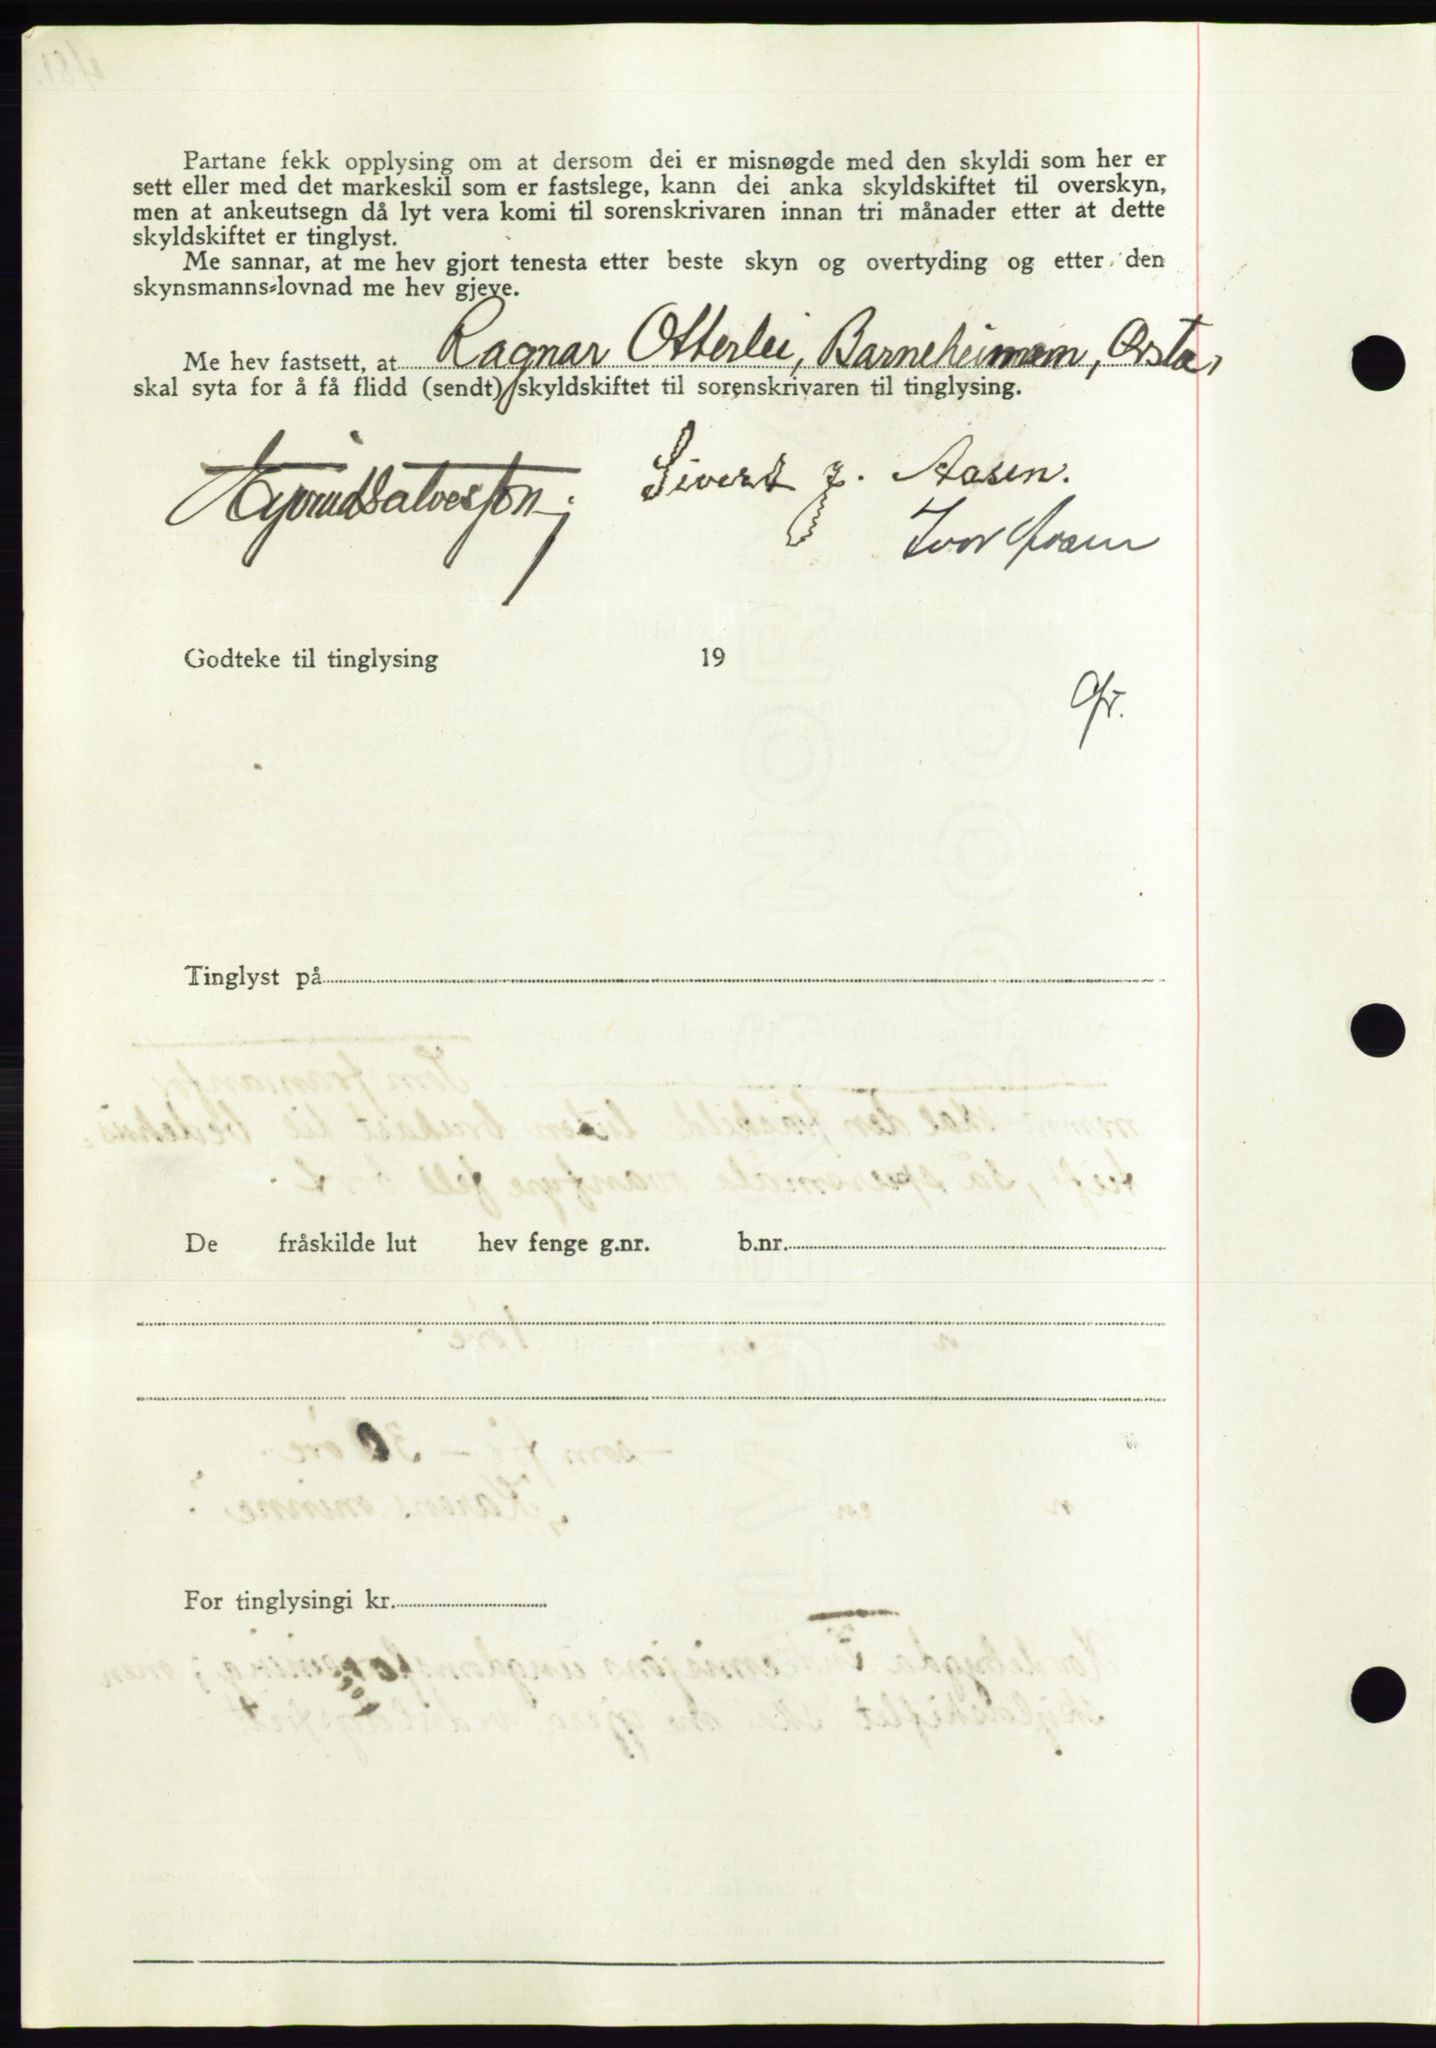 Partane fekk opplysing om at dersom dei er misnøgde med den skyldi som her er
sett eller med det markeskil som er fastslege, kann dei anka skyldskiftet til overskyn,
men at ankeutsegn då lyt vera komi til sorenskrivaren innan tri månader etter at dette
skyldskiftet er tinglyst.
Me sannar, at me hev gjort tenesta etter beste skyn og overtyding og etter den
skynsmanns-lovnad me hev gjeve.
Me hev fastsett, at Ragnar Otterlei, Barneheimen, Ørsta,
skal syta for å få flidd (sendt) skyldskiftet til sorenskrivaren til tinglysing.
Sivert J. Aasen.
Ivar
Godteke til tinglysing 19
Tinglyst på
De fråskilde lut hev fenge g.nr. b.nr.
For tinglysingi kr.